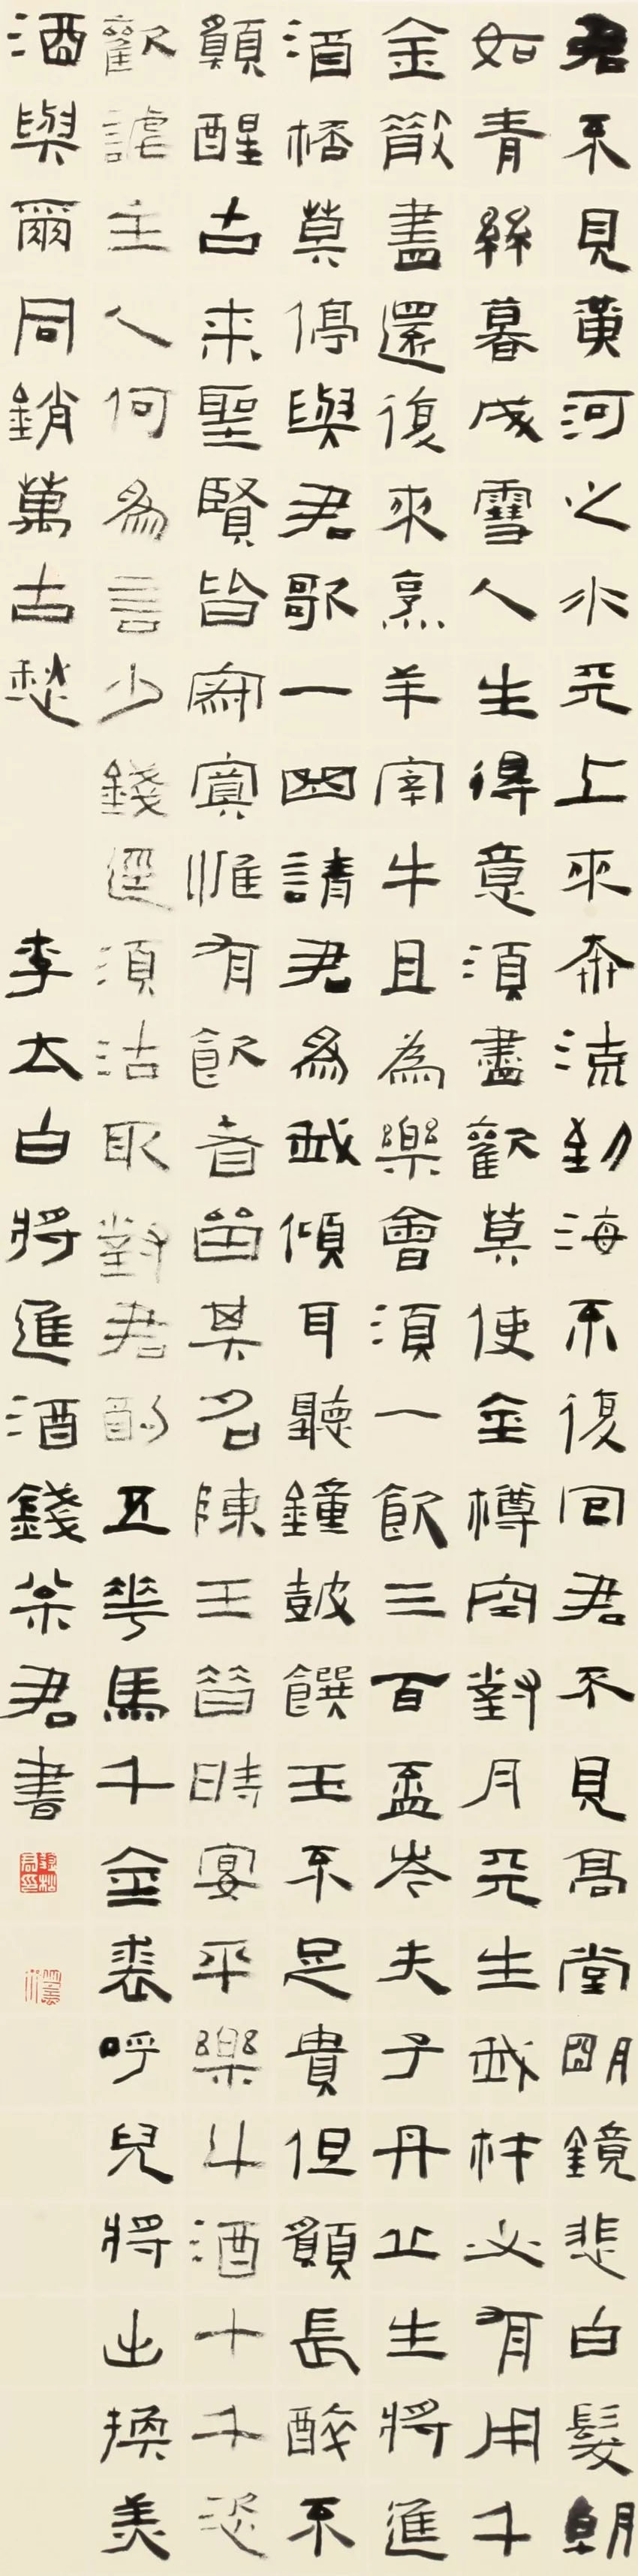 君不見黃河之水天上來奔流到海不復回君不見高堂明鏡悲白髮朝
如青絲暮成雪人生得意須盡歡莫使金樽空對月天生我材必有用千
金散盡還復來烹羊宰牛且為樂會須一飲三百盃岑夫子丹丘生將進
酒桮莫停與君歌一曲請君為我傾耳聽鐘鼓饌玉不足貴但願長醉不
願醒古來聖賢皆寂寞惟有飲者留其名陳王昔時宴平樂斗酒十千恣
歡謔主人何為言少錢逕須沽取對君酌五花馬千金裘呼兒將出換美
酒與爾同銷萬古愁 李太白將進酒錢松君書